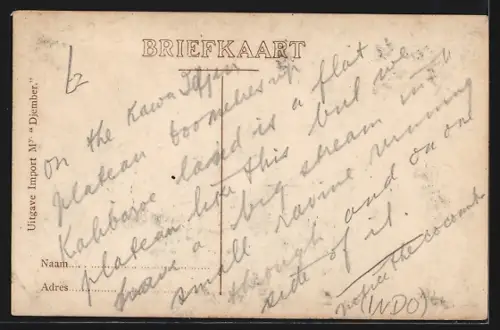 BRIEFKAART
Uitgave Import Mij. "Djember."
Naam
Adres
On the Kawa Idjen
plateau 600 metres up
Kalibaroe land is a flat
plateau like this but we
have a big stream in a
small ravine running
through and on one
side of it.
notice the coconuts
(INDO)